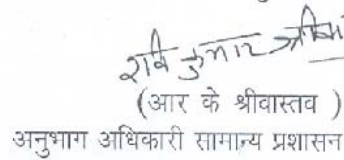 रवि कुमार श्रीवा
(आर के श्रीवास्तव )
अनुभाग अधिकारी सामान्य प्रशासन